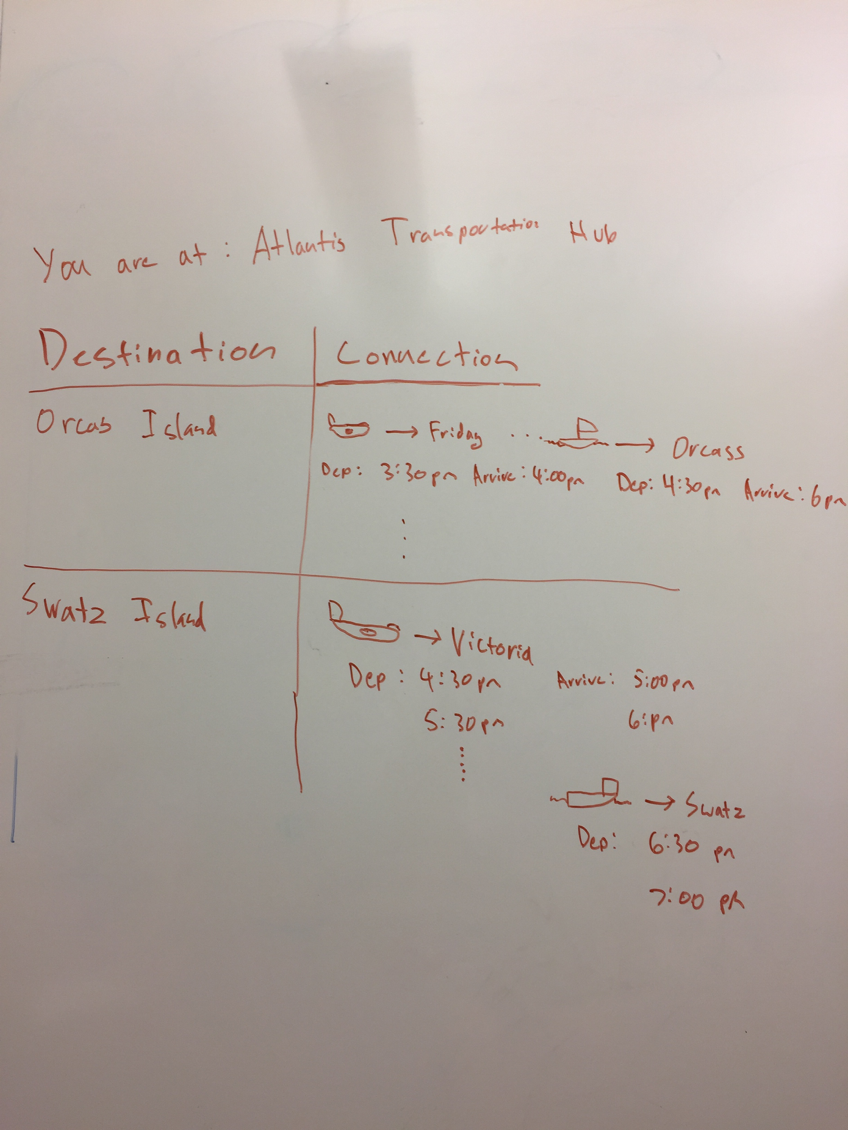 You are at : Atlantis Transportation Hub
Destination Connection
Orcas Island → Friday ... → Orcass
Dep: 3:30pm Arrive: 4:00pm Dep: 4:30pm Arrive: 6pm
Swatz Island → Victoria
Dep : 4:30pm Arrive: 5:00pm
5:30pm 6:pm
→ Swatz
Dep: 6:30 pm
7:00 pm